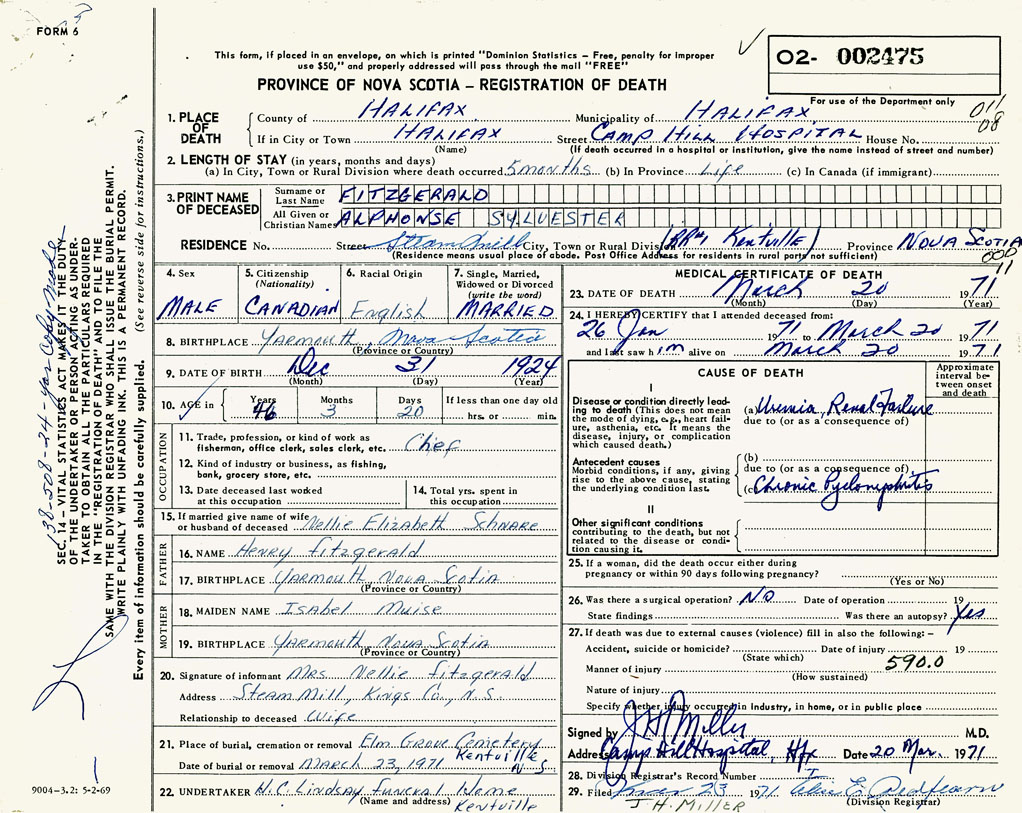 FORM 6
5
This form, if placed in an envelope, on which is printed "Dominion Statistics – Free, penalty for improper
use $50," and properly addressed will pass through the mail "FREE"
PROVINCE OF NOVA SCOTIA – REGISTRATION OF DEATH
O2- 002475
For use of the Department only
011
08
1. PLACE OF DEATH
County of HALIFAX Municipality of HALIFAX
If in City or Town HALIFAX Street CAMP HILL HOSPITAL House No.
(Name) (If death occurred in a hospital or institution, give the name instead of street and number)
2. LENGTH OF STAY (in years, months and days)
(a) In City, Town or Rural Division where death occurred 5 months (b) In Province Life (c) In Canada (if immigrant)
3. PRINT NAME OF DECEASED
Surname or Last Name FITZGERALD
All Given or Christian Names ALPHONSE SYLVESTER
RESIDENCE No. Street Steam Mill City, Town or Rural Division (RR#1, Kentville) Province NOVA SCOTIA
(Residence means usual place of abode. Post Office Address for residents in rural parts not sufficient)
000
11
4. Sex
MALE
5. Citizenship
(Nationality)
CANADIAN
6. Racial Origin
English
7. Single, Married,
Widowed or Divorced
(write the word)
MARRIED
8. BIRTHPLACE YARMOUTH, Nova Scotia
(Province or Country)
9. DATE OF BIRTH Dec 31 1924
(Month) (Day) (Year)
10. AGE in
Years Months Days If less than one day old
46 3 20 hrs. or min.
OCCUPATION
11. Trade, profession, or kind of work as
fisherman, office clerk, sales clerk, etc. Chef
12. Kind of industry or business, as fishing,
bank, grocery store, etc.
13. Date deceased last worked
at this occupation
14. Total yrs. spent in
this occupation
15. If married give name of wife
or husband of deceased Nellie Elizabeth Schnare
FATHER
16. NAME Henry Fitzgerald
17. BIRTHPLACE YARMOUTH, NOVA SCOTIA
(Province or Country)
MOTHER
18. MAIDEN NAME Isabel Muise
19. BIRTHPLACE YARMOUTH NOVA SCOTIA
(Province or Country)
20. Signature of informant MRS Nellie Fitzgerald
Address Steam Mill, Kings Co, N.S.
Relationship to deceased Wife
21. Place of burial, cremation or removal Elm Grove Cemetery
Kentville N S
Date of burial or removal MARCH 23, 1971
22. UNDERTAKER H.C. Lindsay Funeral Home
(Name and address) Kentville
MEDICAL CERTIFICATE OF DEATH
23. DATE OF DEATH March 20 1971
(Month) (Day) (Year)
24. I HEREBY CERTIFY that I attended deceased from:
26 Jan 1971 to March 20 1971
and last saw him alive on March 20 1971
CAUSE OF DEATH
Approximate
interval be-
tween onset
and death
I
Disease or condition directly lead-
ing to death (This does not mean
the mode of dying, e.g., heart fail-
ure, asthenia, etc. It means the
disease, injury, or complication
which caused death.)
(a) Uremia, Renal Failure
due to (or as a consequence of)
Antecedent causes
Morbid conditions, if any, giving
rise to the above cause, stating
the underlying condition last.
(b)
due to (or as a consequence of)
(c) Chronic Pyelonephritis
II
Other significant conditions
contributing to the death, but not
related to the disease or condi-
tion causing it.
25. If a woman, did the death occur either during
pregnancy or within 90 days following pregnancy?
(Yes or No)
26. Was there a surgical operation? NO Date of operation 19
State findings Was there an autopsy? Yes
27. If death was due to external causes (violence) fill in also the following: –
Accident, suicide or homicide? Date of injury 19
(State which)
590.0
Manner of injury
(How sustained)
Nature of injury
Specify whether injury occurred in Industry, in home, or in public place
Signed by J H Miller M.D.
Address Camp Hill Hospital, Hfx Date 20 Mar. 1971
28. Division Registrar's Record Number
29. Filed Mar 23 1971
J. H. MILLER (Division Registrar)
SEC. 14 – VITAL STATISTICS ACT MAKES IT THE DUTY
OF THE UNDERTAKER OR PERSON ACTING AS UNDER-
TAKER TO OBTAIN ALL THE PARTICULARS REQUIRED
IN THE "REGISTRATION OF DEATH" AND FILE THE
SAME WITH THE DIVISION REGISTRAR WHO SHALL ISSUE THE BURIAL PERMIT.
WRITE PLAINLY WITH UNFADING INK. THIS IS A PERMANENT RECORD.
Every item of information should be carefully supplied. (See reverse side for instructions.)
9004-3.2: 5-2-69